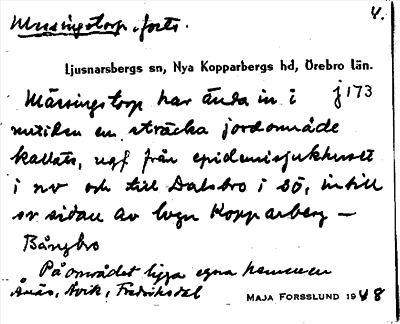 4.
Mässingstorp, forts.
Ljusnarsbergs sn, Nya Kopparbergs hd, Örebro län.
Mässingstorp har ända in i j 173
nutiden en sträcka jordområde
kallats, ugf från epidemisjukhuset
i nv och till Dalsbro i sö, intill
sv sidan av lvgn Kopparberg –
Bångbro
På området ligga egna hemmen
Ånäs, Avik, Fredriksdal
MAJA FORSSLUND 1948